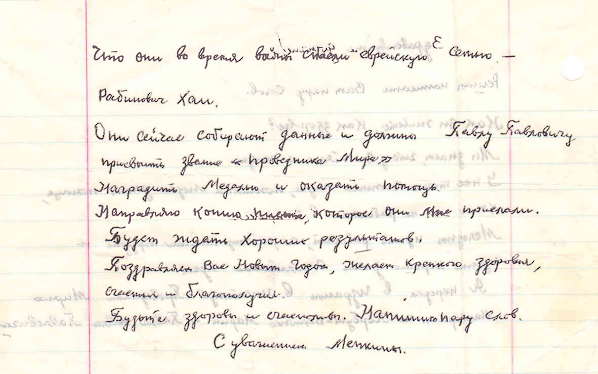 Что они во время войны спасли еврейскую Семью. —
Рабинович Хаи.
Они сейчас собирают данные и должны Павлу Павловичу
присвоить звание «Праведника Мира»
Наградить Медалью и оказать помощь.
Направляю копию, которое они мне прислали.
Будем ждать хороших результатов.
Поздравляем Вас Новым Годом, желаем крепкого здоровья,
счастья и благополучия.
Будьте здоровы и счастливы. Напишите пару слов.
С уважением Менкины.